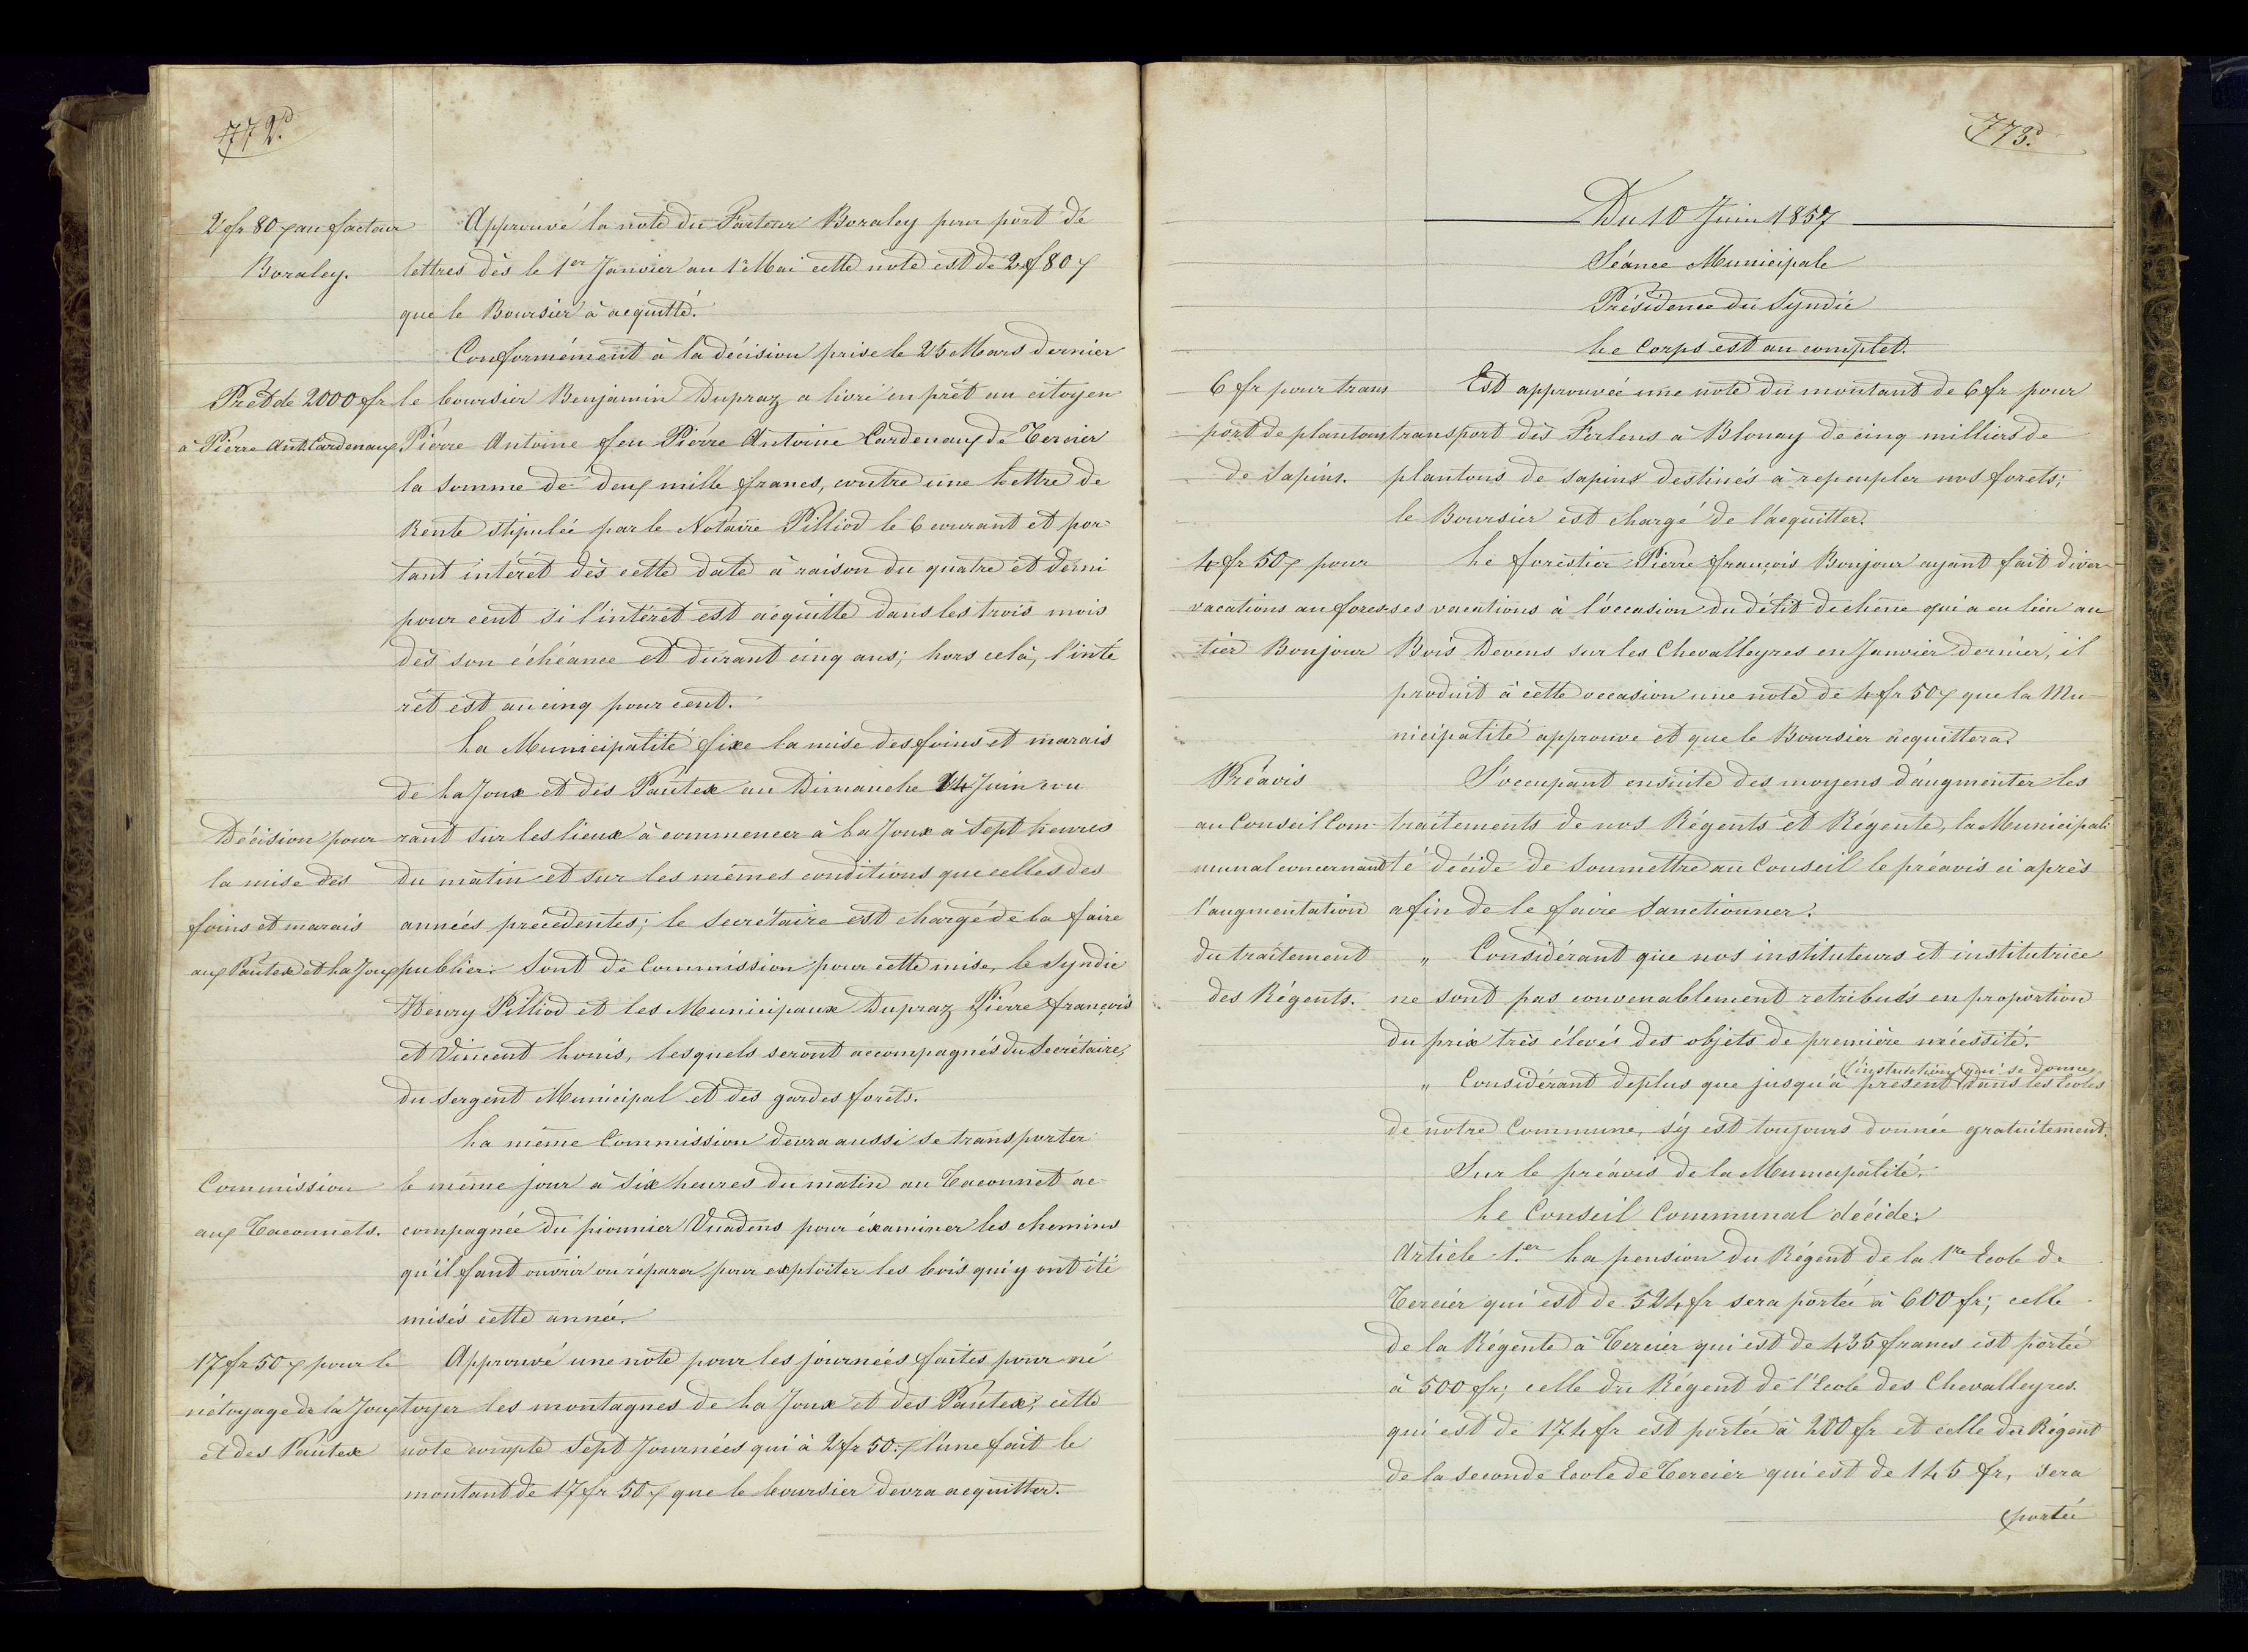 772.
2 fr 80 r au facteur
Boraley.
Approuvé la note du Facteur Boraley pour port de
lettres dès le 1er Janvier au 1r Mai cette note est de 2 f 80 r
que le Boursier à acquitté.
Conformément à la décision prise le 25 Mars dernier
Prêt de 2000 fr
à Pierre Ant. Cardenaux
le boursier Benjamin Dupraz a livré en prêt au citoyen
Pierre Antoine feu Pierre Antoine Cardenaux de Tercier
la somme de deux mille francs, contre une Lettre de
Rente stipulée par le Notaire Pilliod le 6 courant et por-
tant intérêt dès cette date à raison du quatre et demi
pour cent si l'intérêt est acquitté dans les trois mois
dès son échéance et durant cinq ans; hors celà, l'inté
rêt est au cinq pour cent.
La Municipalité fixe la mise des foins et marais
de La Joux et des Pautex au Dimanche 14 Juin cou
Décision pour
la mise des
foins et marais
aux Pautex et La Joux
rant sur les lieux à commencer à La Joux à sept heures
du matin et sur les mêmes conditions que celles des
années précédentes; le secrétaire est chargé de la faire
publier. Sont de Commission pour cette mise, le Syndic
Henry Pilliod et les Municipaux Dupraz Pierre françois
et Vincent Louis, lesquels seront accompagnés du Secrétaire,
du sergent Municipal et des gardes forêts.
La même Commission devra aussi se transporter
Commission
aux Taconnets.
le même jour à six heures du matin au Taconnet ac-
compagnée du pionnier Vuadens pour éxaminer les chemins
qu'il faut ouvrir ou réparer pour exploiter les bois qui y ont été
misés cette année.
17 fr 50 r pour le
nétoyage de la Joux
et des Pautex
Approuvé une note pour les journées faites pour né
toyer les montagnes de La Joux et des Pautex; cette
note compte sept Journées qui à 2 fr 50 r l'une fait le
montant de 17 fr 50 r que le boursier devra acquitter.
773.
Du 10 Juin 1857
Séance Municipale
Présidence du Syndic
Le Corps est au complet.
6 fr pour trans
port de plantons
de sapins.
Est approuvée une note du montant de 6 fr pour
transport dès Ferlens à Blonay de cinq milliers de
plantons de sapins destinés à repeupler nos forets;
le Boursier est chargé de l'acquitter.
4 fr 50 r pour
vacations au fores-
tier Bonjour
Le forestier Pierre françois Bonjour ayant fait diver-
ses vacations à l'occasion du délit de chêne qui a eu lieu au
Bois Devens sur les Chevalleyres en Janvier dernier, il
produit à cette occasion une note de 4 fr 50 r que la Mu-
nicipalité approuve et que le Boursier acquittera.
Préavis
au Conseil Com-
munal concernant
l'augmentation
du traitement
des Régents.
S'occupant ensuite des moyens d'augmenter les
traitements de nos Régents et Régente, la Municipali
té décide de soumettre au Conseil le préavis ci après
afin de le faire sanctionner.
" Considérant que nos instituteurs et institutrice
ne sont pas convenablement retribués en proportion
du prix très élevés des objets de première nécessité.
l'instruction qui se donne
" Considérant deplus que jusqu'à présent dans les Ecoles
de notre Commune, s'y est toujours donnée gratuitement.
Sur le préavis de la Municipalité.
Le Conseil Communal décide:
Article 1.er La pension du Régent de la 1re Ecole de
Tercier qui est de 524 fr sera portée à 600 fr; celle
de la Régente à Tercier qui est de 435 francs est portée
à 500 fr; celle du Régent de l'Ecole des Chevalleyres
qui est de 174 fr est portée à 200 fr et celle du Régent
de la seconde Ecole de Tercier qui est de 145 fr, sera
portée